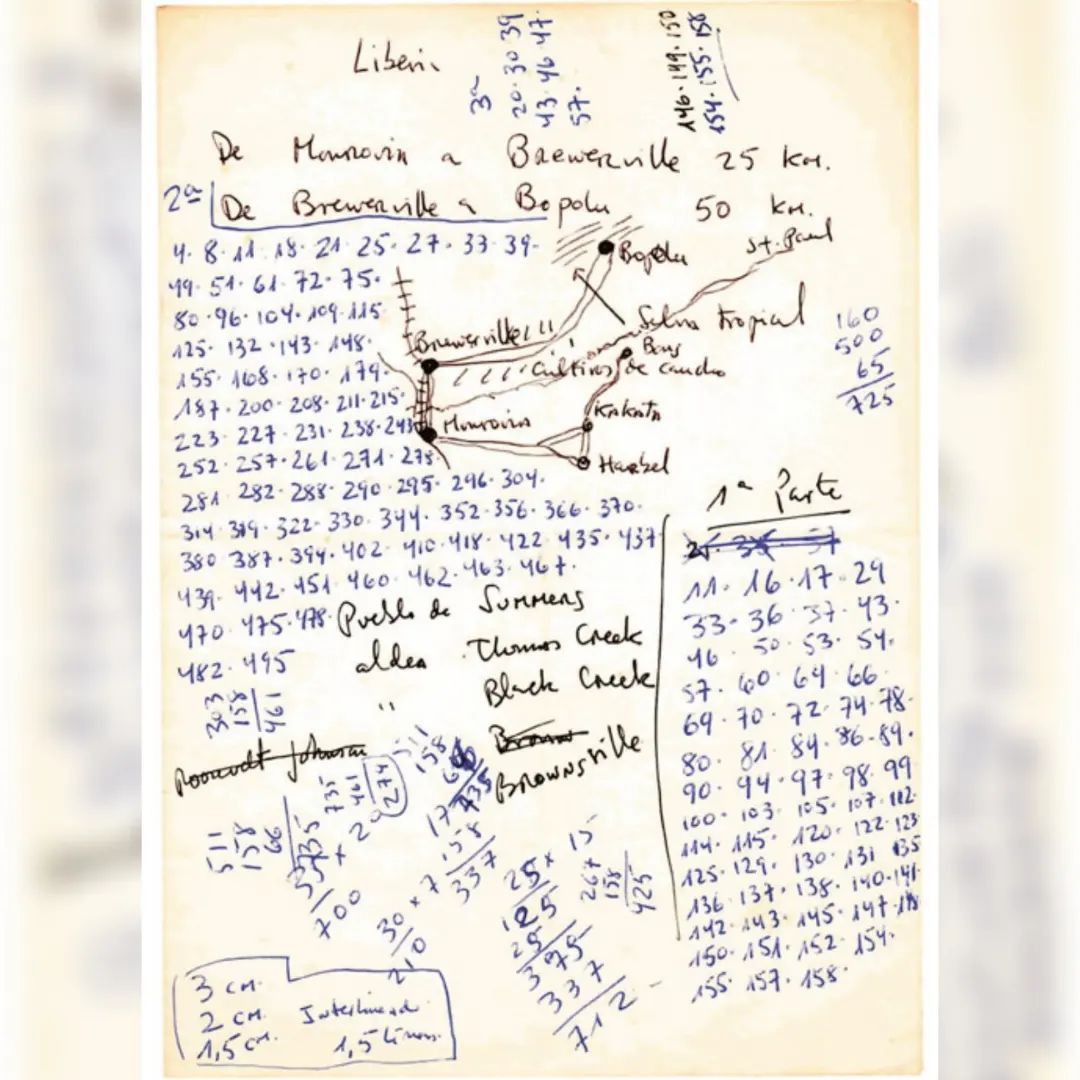 Liberia
3ª
20·30·39
43·46·47·
57·
146·149·150
154·155·158
De Monrovia a Brewerville 25 km.
2ª De Brewerville a Bopolu 50 km.
4·8·11·18·21·25·27·33·39·
49·51·61·72·75·
80·96·104·109·115·
125·132·143·148·
155·168·170·179·
187·200·208·211·215·
223·227·231·238·243
252·257·261·271·278·
281·282·288·290·295·296·304·
314·319·322·330·344·352·356·366·370·
380·387·394·402·410·418·422·435·437
439·442·451·460·462·463·467·
470·475·478·
482·495
Bopolu
St. Paul
Selva tropical
Brewerville
Cultivos de caucho
Bong
Monrovia
Kakata
Harbel
160
500
65
725
Pueblo de Summers
aldea Thomas Creek
" Black Creek
Brownsville
Roosevelt Johnson
1ª Parte
25·35·57
11·16·17·29
33·36·37·43·
46·50·53·54·
57·60·64·66·
69·70·72·74·78·
80·81·84·86·89·
90·94·97·98·99
100·103·105·107·112
114·115·120·122·123
125·129·130·131·135
136·137·138·140·141
142·143·145·147·148
150·151·152·154·
155·157·158·
303
158
461
735
461
274
511
158
66
735
735 × 2
700
511
158
66
735
17
158
337
30 × 7
210
25 × 15
125
25
375
337
712
267
158
425
3 cm.
2 cm. Interlineado
1,5 cm. 1,5 líneas